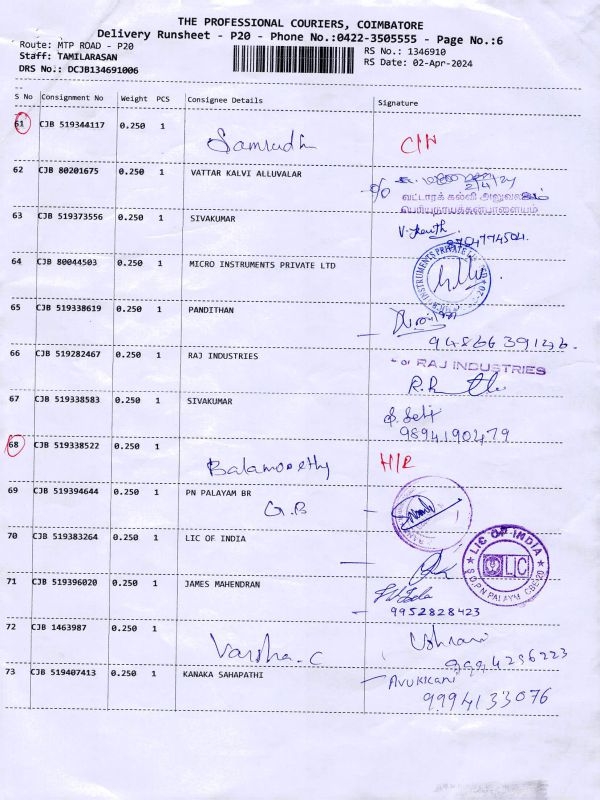 THE PROFESSIONAL COURIERS, COIMBATORE
Delivery Runsheet - P20 - Phone No.:0422-3505555 - Page No.:6
Route: MTP ROAD - P20
RS No.: 1346910
Staff: TAMILARASAN
RS Date: 02-Apr-2024
DRS No.: DCJB134691006
S No Consignment No Weight PCS Consignee Details Signature
61 CJB 519344117 0.250 1
62 CJB 80201675 0.250 1 VATTAR KALVI ALLUVALAR
2/4/24
வட்டாரக் கல்வி அலுவலகம்
பெரியநாயக்கன்பாளையம்
63 CJB 519373556 0.250 1 SIVAKUMAR
8704774504.
64 CJB 80044503 0.250 1 MICRO INSTRUMENTS PRIVATE LTD
INSTRUMENTS PRIVATE
65 CJB 519338619 0.250 1 PANDITHAN
9486639146.
66 CJB 519282467 0.250 1 RAJ INDUSTRIES
RAJ INDUSTRIES
67 CJB 519338583 0.250 1 SIVAKUMAR
9894190479
68 CJB 519338522 0.250 1
Balamoorthy
69 CJB 519394644 0.250 1 PN PALAYAM BR
G.B
70 CJB 519383264 0.250 1 LIC OF INDIA
LIC OF INDIA
LIC
S.O.P.N PALAYM. CBE-20
71 CJB 519396020 0.250 1 JAMES MAHENDRAN
9952828423
72 CJB 1463987 0.250 1
Varsha.C
Ushrani
9994296223
73 CJB 519407413 0.250 1 KANAKA SAHAPATHI
Avukkani
9994133076